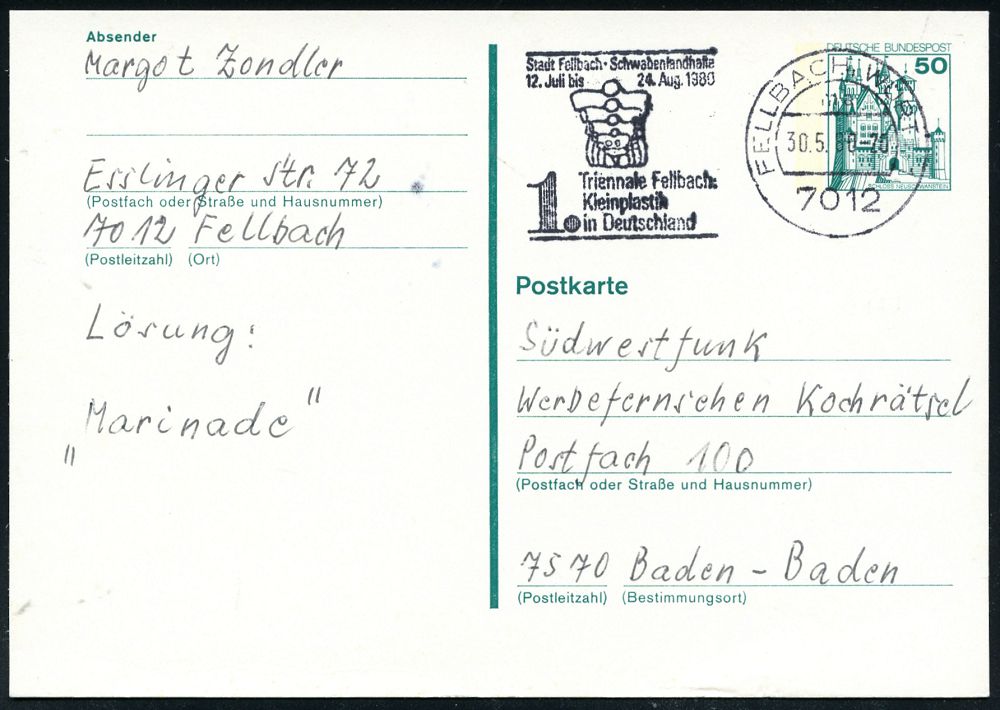 Absender
Margot Zondler
Esslinger Str. 72
(Postfach oder Straße und Hausnummer)
7012 Fellbach
(Postleitzahl) (Ort)
Lösung:
„Marinade"
Stadt Fellbach · Schwabenlandhalle
12. Juli bis 24. Aug. 1980
1. Triennale Fellbach:
Kleinplastik
in Deutschland
FELLBACH, WÜRTT
30.5.80-20
7012
DEUTSCHE BUNDESPOST
50
SCHLOSS NEUSCHWANSTEIN
Postkarte
Südwestfunk
Werbefernsehen Kochrätsel
Postfach 100
(Postfach oder Straße und Hausnummer)
7570 Baden-Baden
(Postleitzahl) (Bestimmungsort)